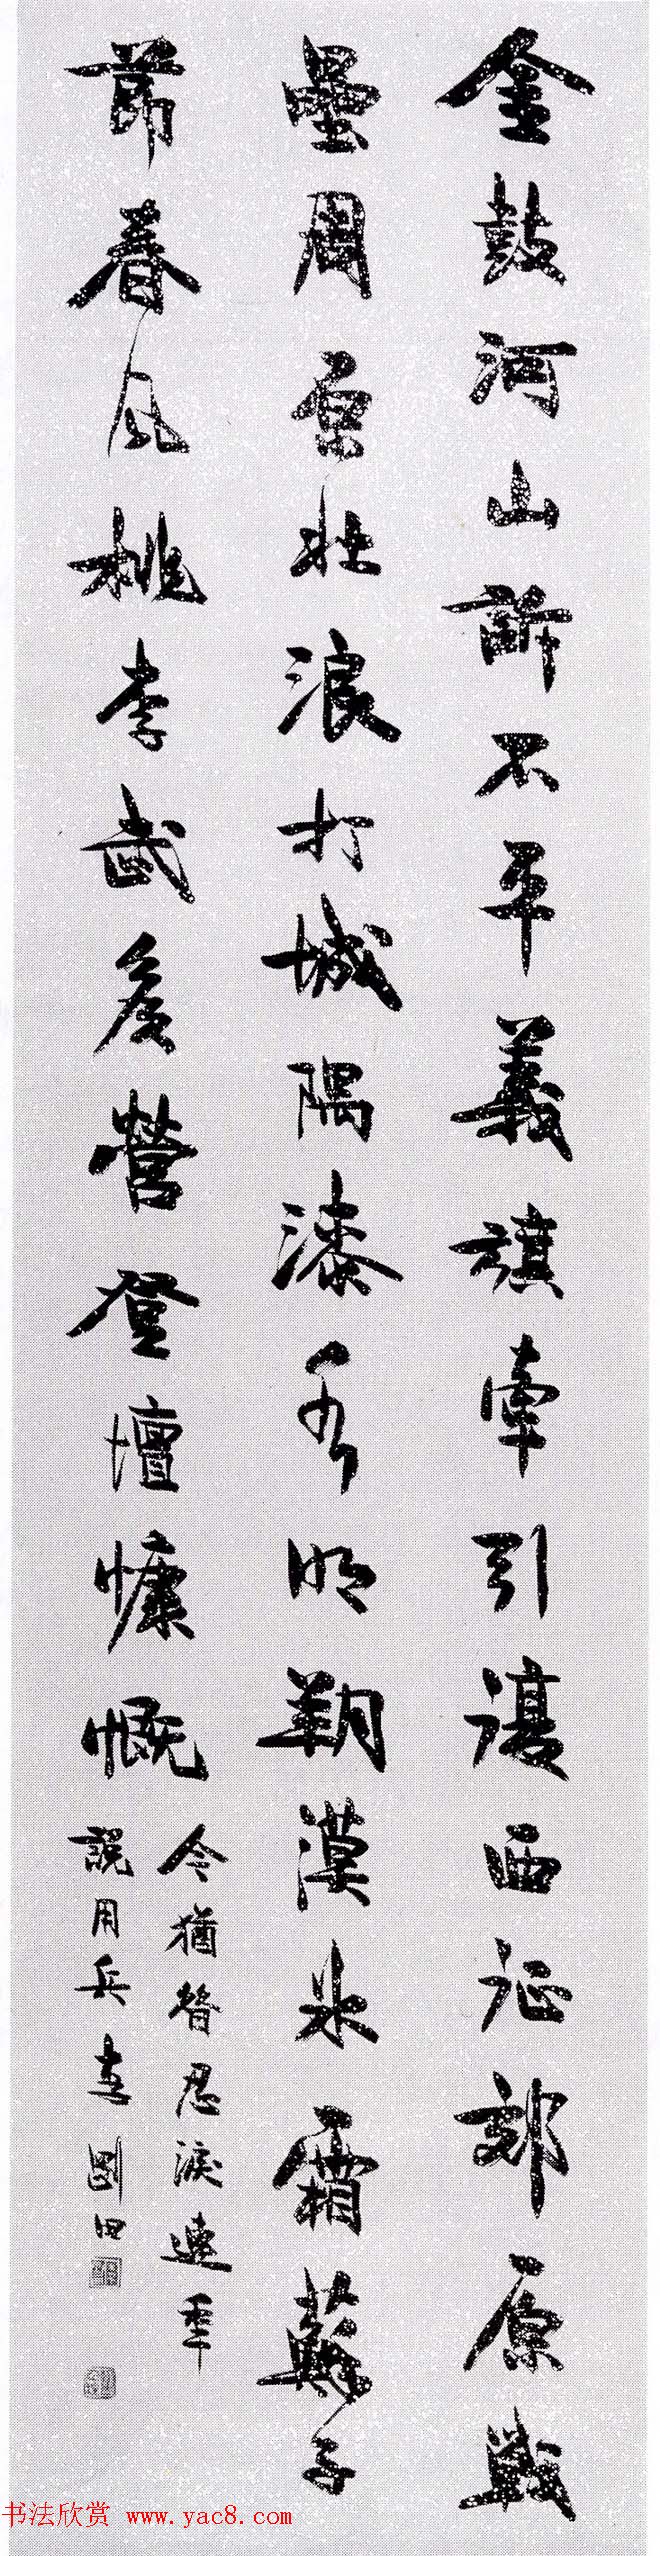 金鼓河山訴不平義旗牽引護西征郊原戰
壘周原壯浪打城隅漆水明朔漠冰霜蘇子
節春風桃李武侯營登壇慷慨
今猶昔忍淚連年
說用兵 李剛田
书法欣赏 www.yac8.com